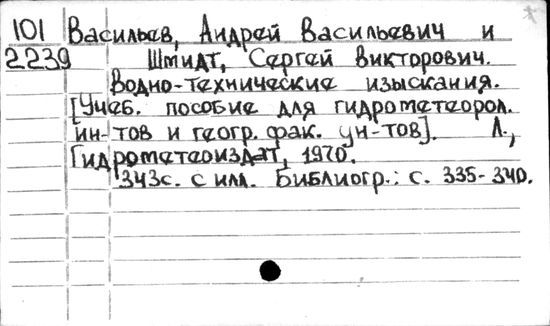 101 Васильев, Андрей Васильевич и
2239 Шмидт, Сергей Викторович.
Водно-технические изыскания.
[Учеб. пособие для гидрометеорол.
ин-тов и геогр. фак. ун-тов]. Л.,
Гидрометеоиздат, 1970.
343с. с илл. Библиогр.: с. 335-340.